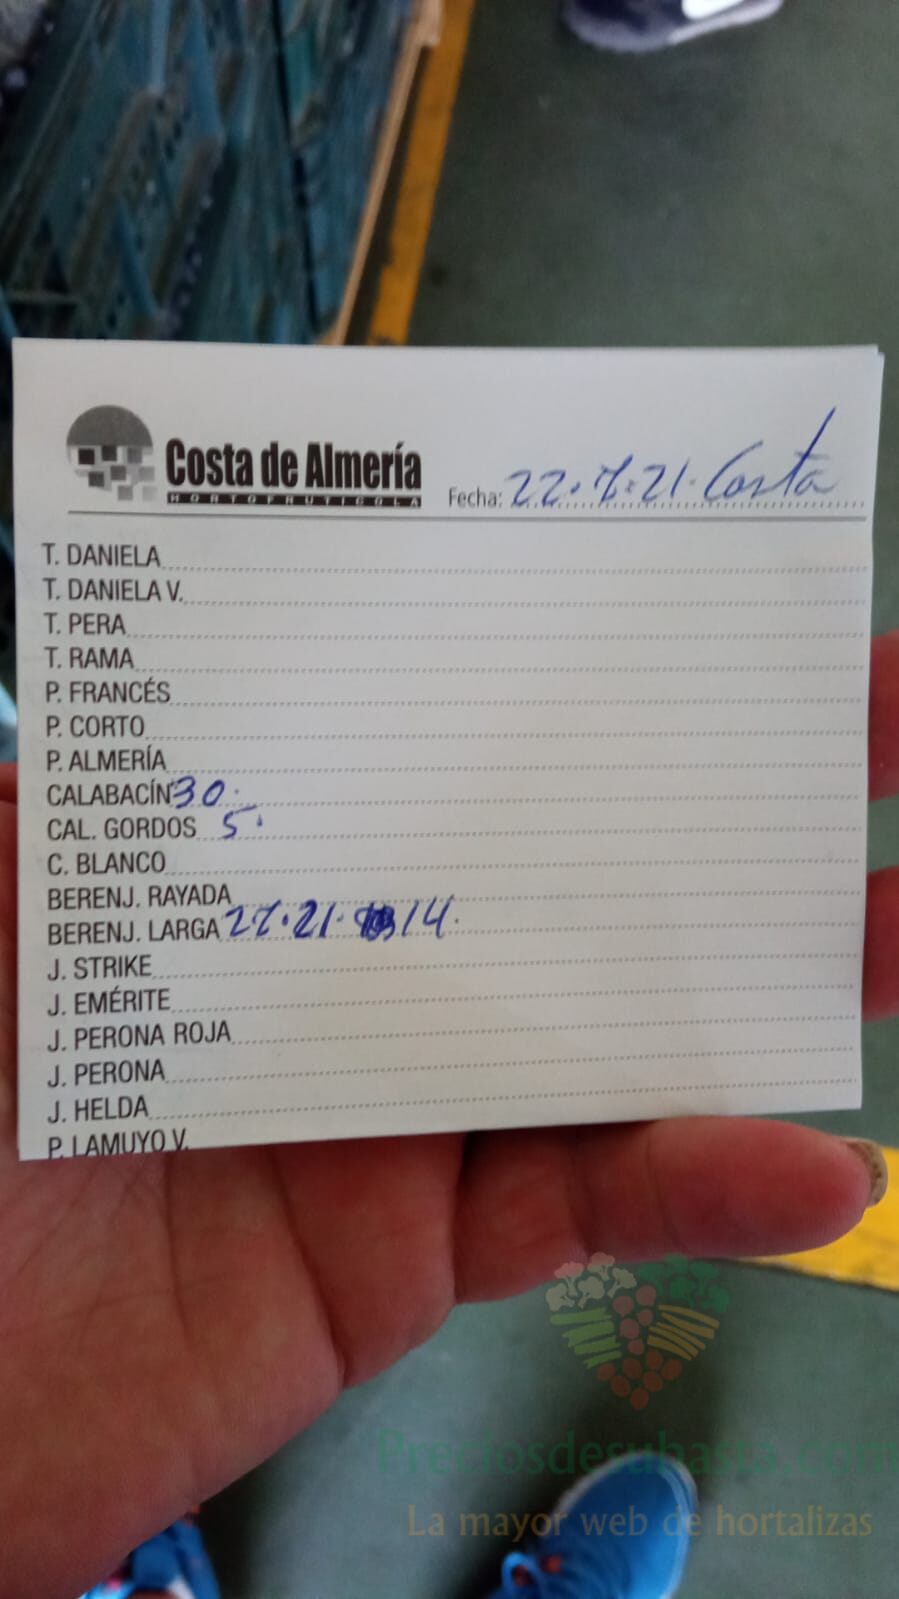 Costa de Almería
HORTOFRUTICOLA
Fecha: 22.7.21. Costa
T. DANIELA
T. DANIELA V.
T. PERA
T. RAMA
P. FRANCÉS
P. CORTO
P. ALMERÍA
CALABACÍN 30.
CAL. GORDOS 5.
C. BLANCO
BERENJ. RAYADA
BERENJ. LARGA 27.21. 14.
J. STRIKE
J. EMÉRITE
J. PERONA ROJA
J. PERONA
J. HELDA
P. LAMUYO V.
Preciosdesubasta.com
La mayor web de hortalizas